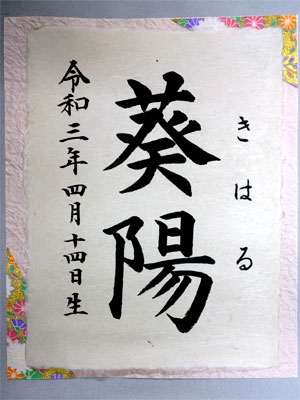 きはる
葵陽
令和三年四月十四日生